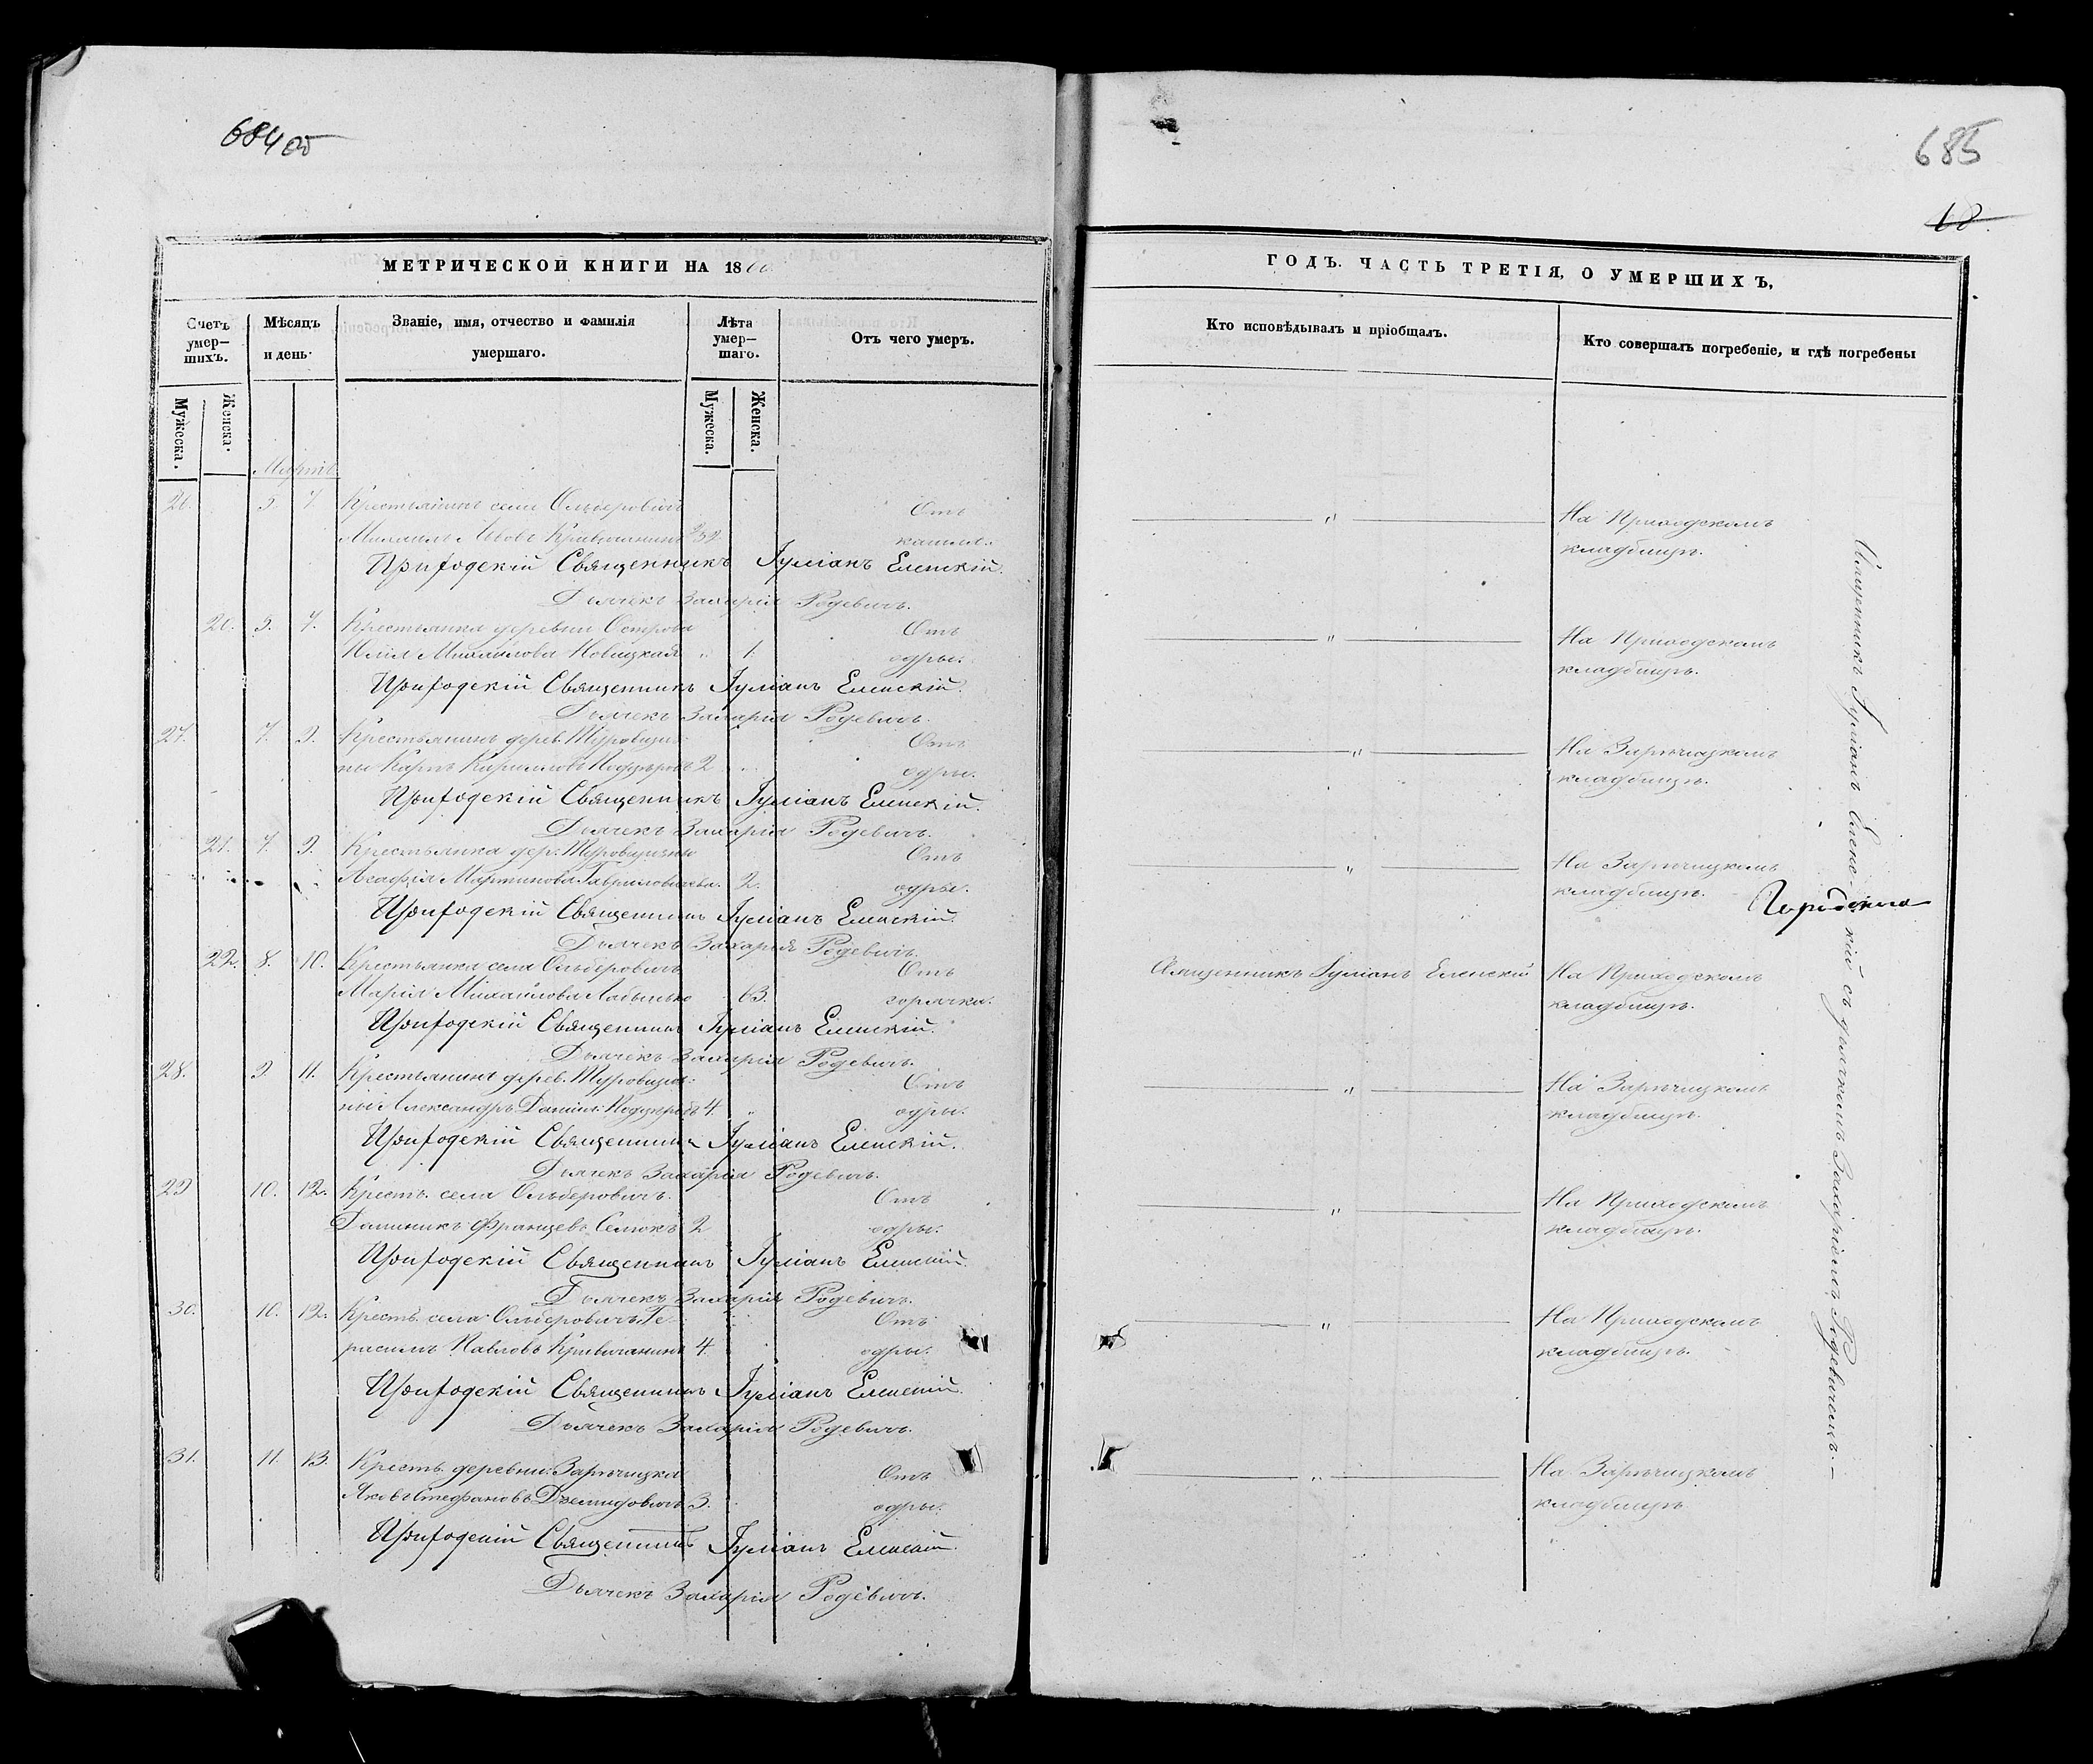 684 об
685
68.
МЕТРИЧЕСКОЙ КНИГИ НА 1860
ГОДЪ. ЧАСТЬ ТРЕТІЯ, О УМЕРШИХЪ,
Счетъ умер—шихъ.
Мѣсяцъ и день.
Званіе, имя, отчество и фамилія умершаго.
Лѣта умер—шаго.
Отъ чего умеръ.
Кто исповѣдывалъ и пріобщалъ.
Кто совершалъ погребеніе, и гдѣ погребены
Мужеска. Женска. Мужеска. Женска.
Мартъ
26. 5. 7. Крестьянинъ села Ольберовичь Отъ — " — На Приходскомъ
Михаилъ Львовъ Кривичанинъ кашля. кладбищѣ.
Приходскій Священникъ Іуліанъ Еленскій.
Дьячекъ Захарія Родевичъ.
20. 5. 7. Крестьянка деревни Острова Отъ — " — На Приходскомъ
Михайлова Новицкая " 1. одры. кладбищѣ.
Приходскій Священникъ Іуліанъ Еленскій.
Дьячекъ Захарія Родевичъ.
27. 7. 9. Крестьянинъ дерев. Туровищи- Отъ — " — На Зарѣчицкомъ
ны Карпъ Кирилловъ 2 " одры. кладбищѣ.
Приходскій Священникъ Іуліанъ Еленскій.
Дьячекъ Захарія Родевичъ.
21. 7. 9. Крестьянка дер. Отъ — " — На Зарѣчицкомъ
Агафія Мартинова 2. одры. кладбищѣ.
Приходскій Священникъ Іуліанъ Еленскій.
Дьячекъ Захарія Родевичъ.
22. 8. 10. Крестьянка села Ольберовичь Отъ Священникъ Іуліанъ Еленскій На Приходскомъ
Марія Михайлова 63. горячки. кладбищѣ.
Приходскій Священникъ Іуліанъ Еленскій.
Дьячекъ Захарія Родевичъ.
28. 9. 11. Крестьянинъ дерев. Туровищи- Отъ — " — На Зарѣчицкомъ
ны Александръ Даніил. 4. " одры. кладбищѣ.
Приходскій Священникъ Іуліанъ Еленскій.
Дьячекъ Захарія Родевичъ.
29 10. 12. Крестъ. села Ольберовичъ. Отъ — " — На Приходскомъ
Доминикъ Францевъ Семокъ 2 одры. кладбищѣ.
Приходскій Священникъ Іуліанъ Еленскій.
Дьячекъ Захарія Родевичъ.
30. 10. 12. Крестъ. села Ольберовичъ Ге- Отъ — " — На Приходскомъ
расимъ Павловъ Кривичанинъ 4 одры. кладбищѣ.
Приходскій Священникъ Іуліанъ Еленскій.
Дьячекъ Захарія Родевичъ.
31. 11. 13. Крестъ. деревни Зарѣчицка Отъ — " — На Зарѣчицкомъ
Яковъ Стефановъ Демидовичъ 3. одры. кладбищѣ
Приходскій Священникъ Іуліанъ Еленскій.
Дьячекъ Захарія Родевичъ.
Священникъ Іуліанъ Еленскій съ дьячкомъ Захаріемъ Родевичемъ.—